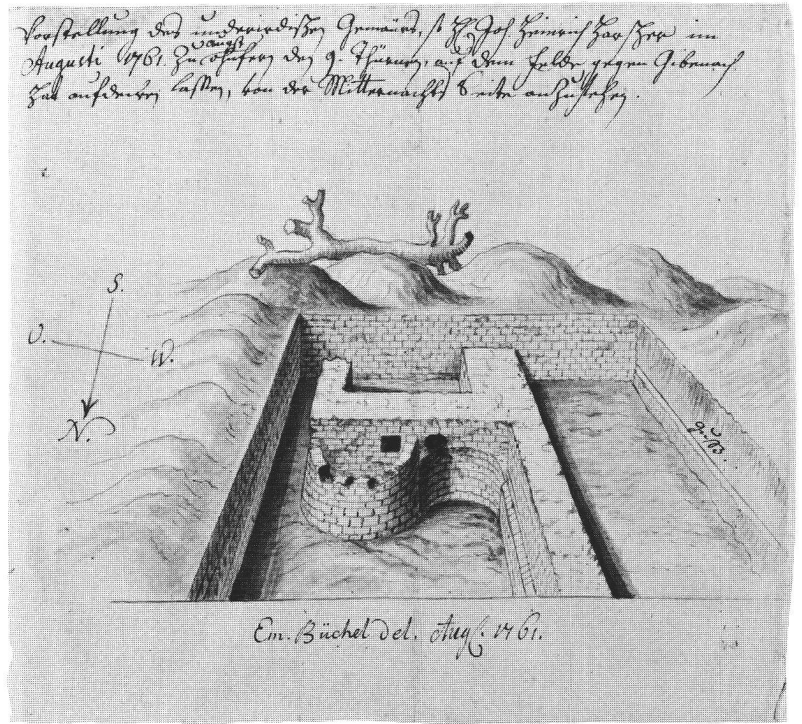 Vorstellung des underirdischen Gemäurs, so H. Joh. Heinrich Harscher im
Augst
Augusti 1761. Zu ohnfern den 9. Thürnen, auf dem Felde gegen Gibenach
hat aufdecken lassen, von der Mitternachts Seite anzusehen.
S.
O.
W.
N.
Em. Büchel del. Aug. 1761.